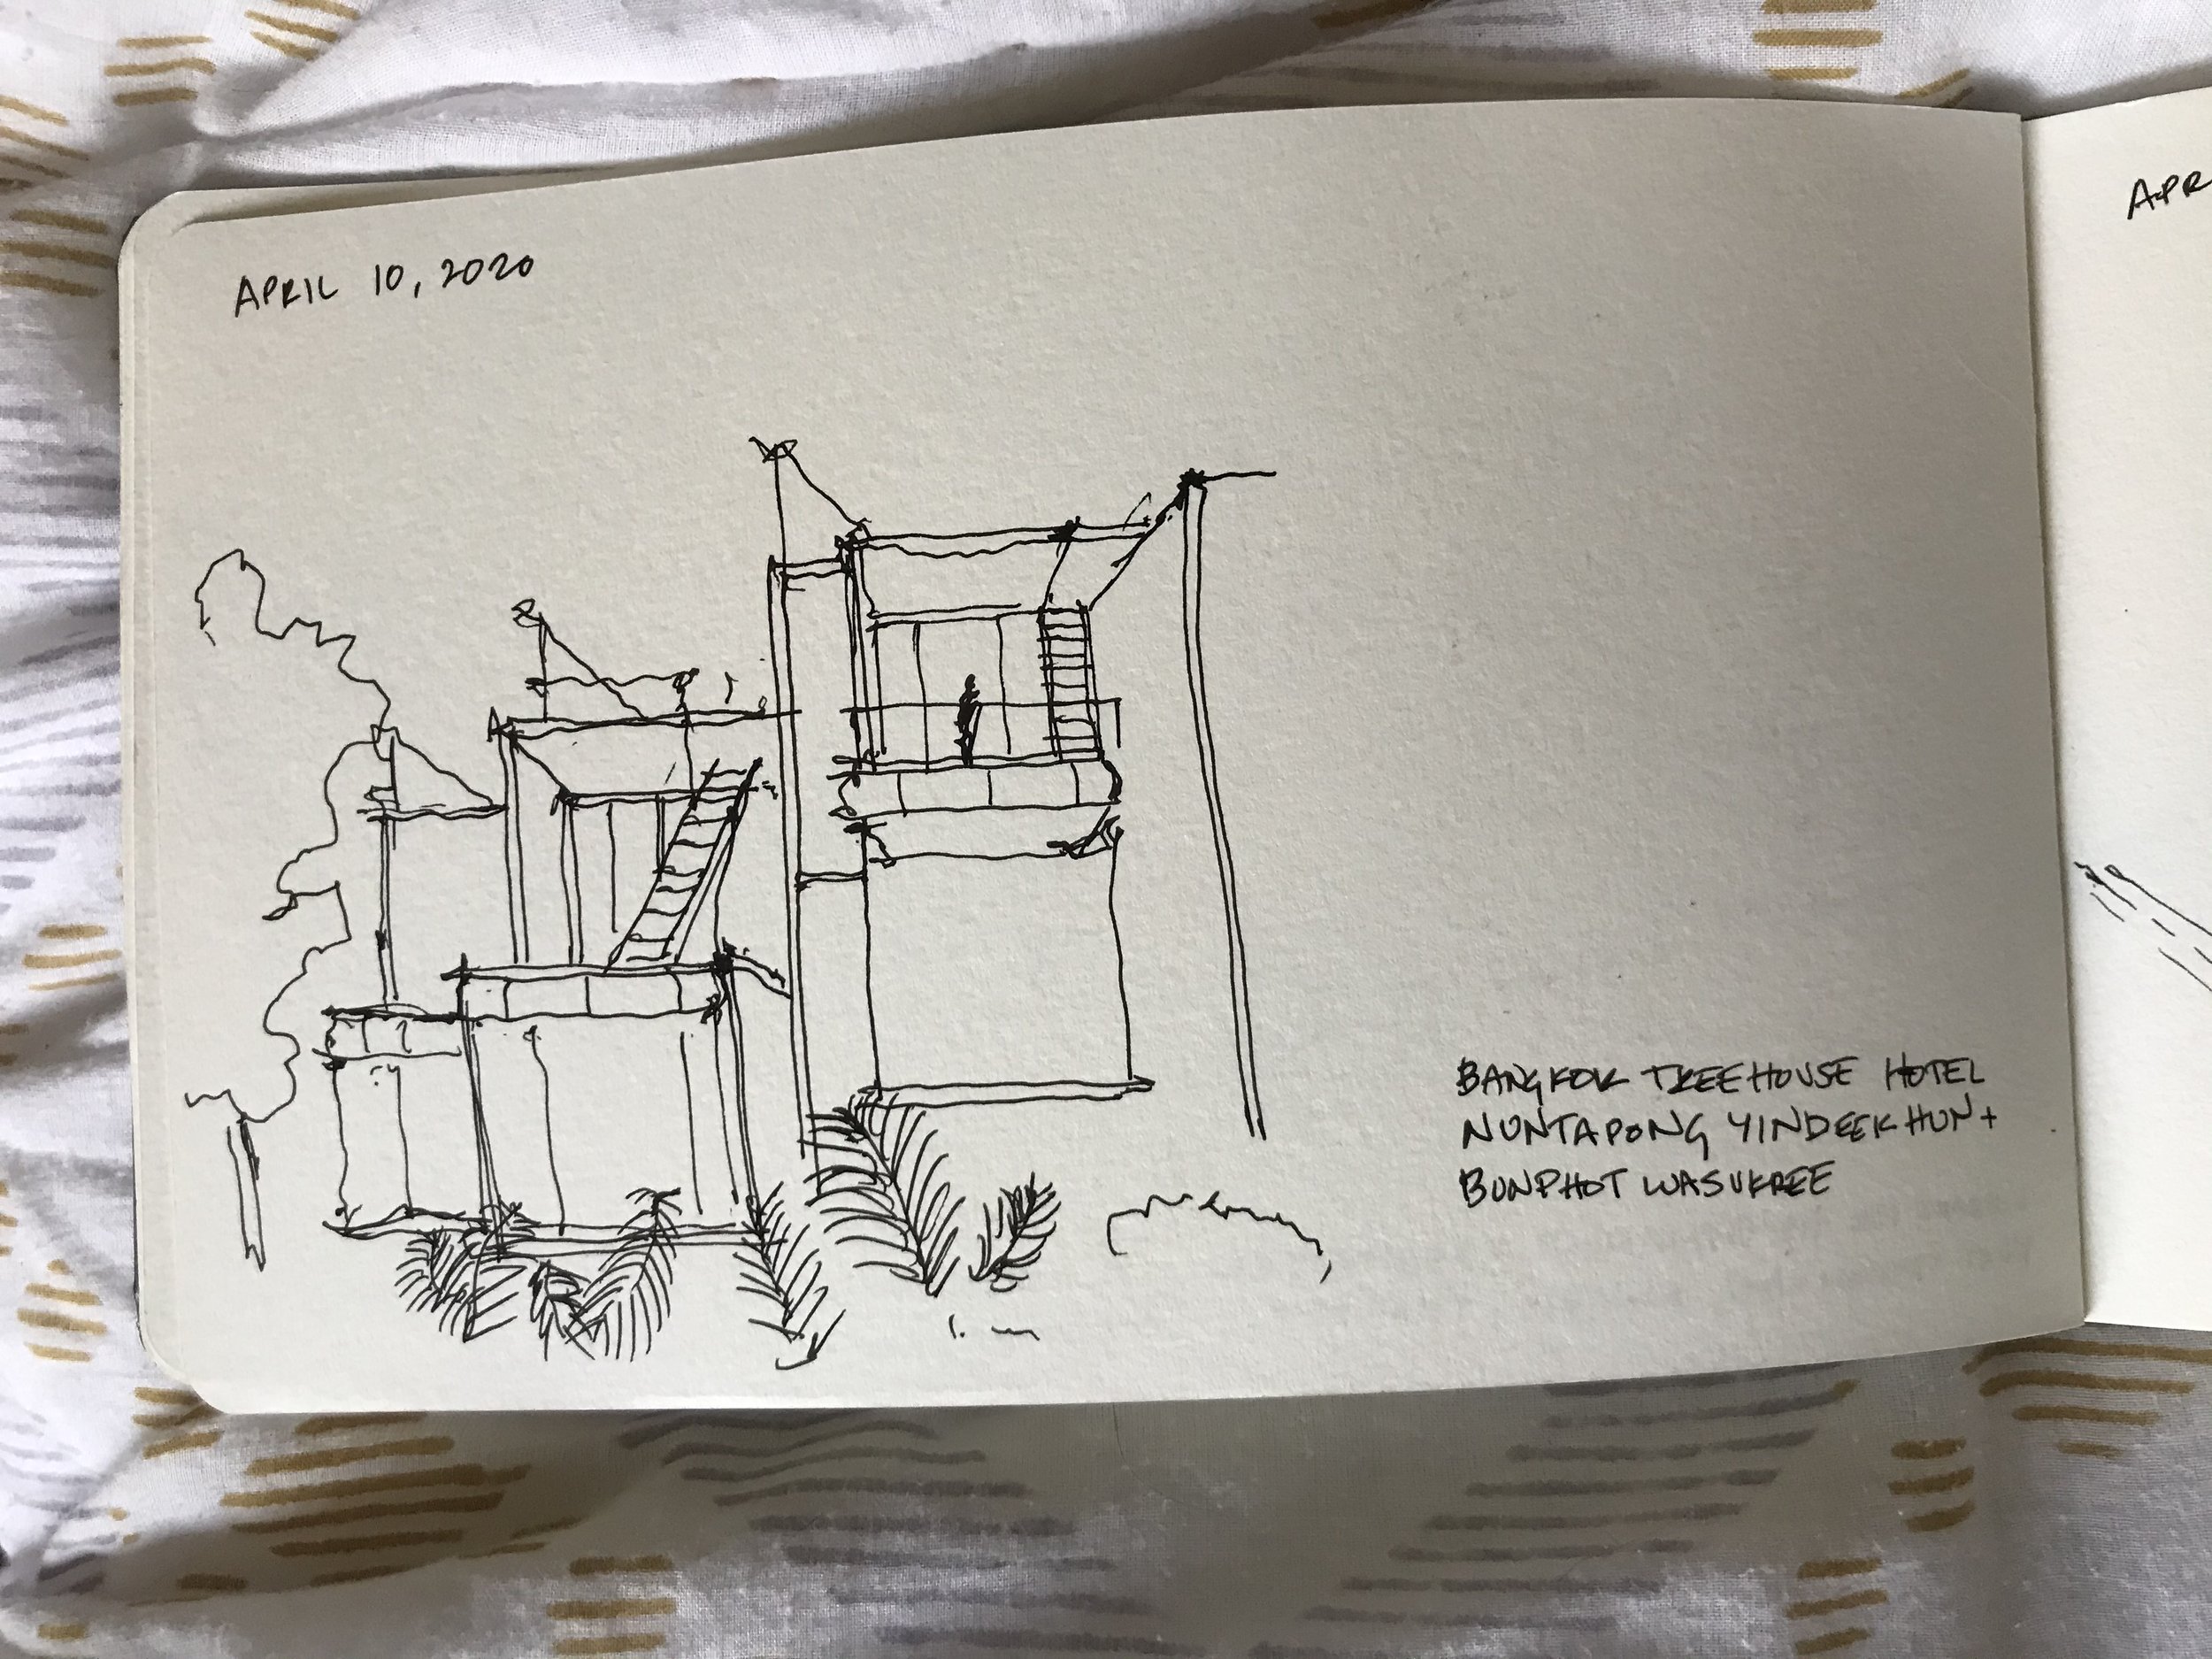 APRIL 10, 2020
APR
BANGKOK TREEHOUSE HOTEL
NUNTAPONG YINDEEKHUN +
BUNPHOT WASUKREE